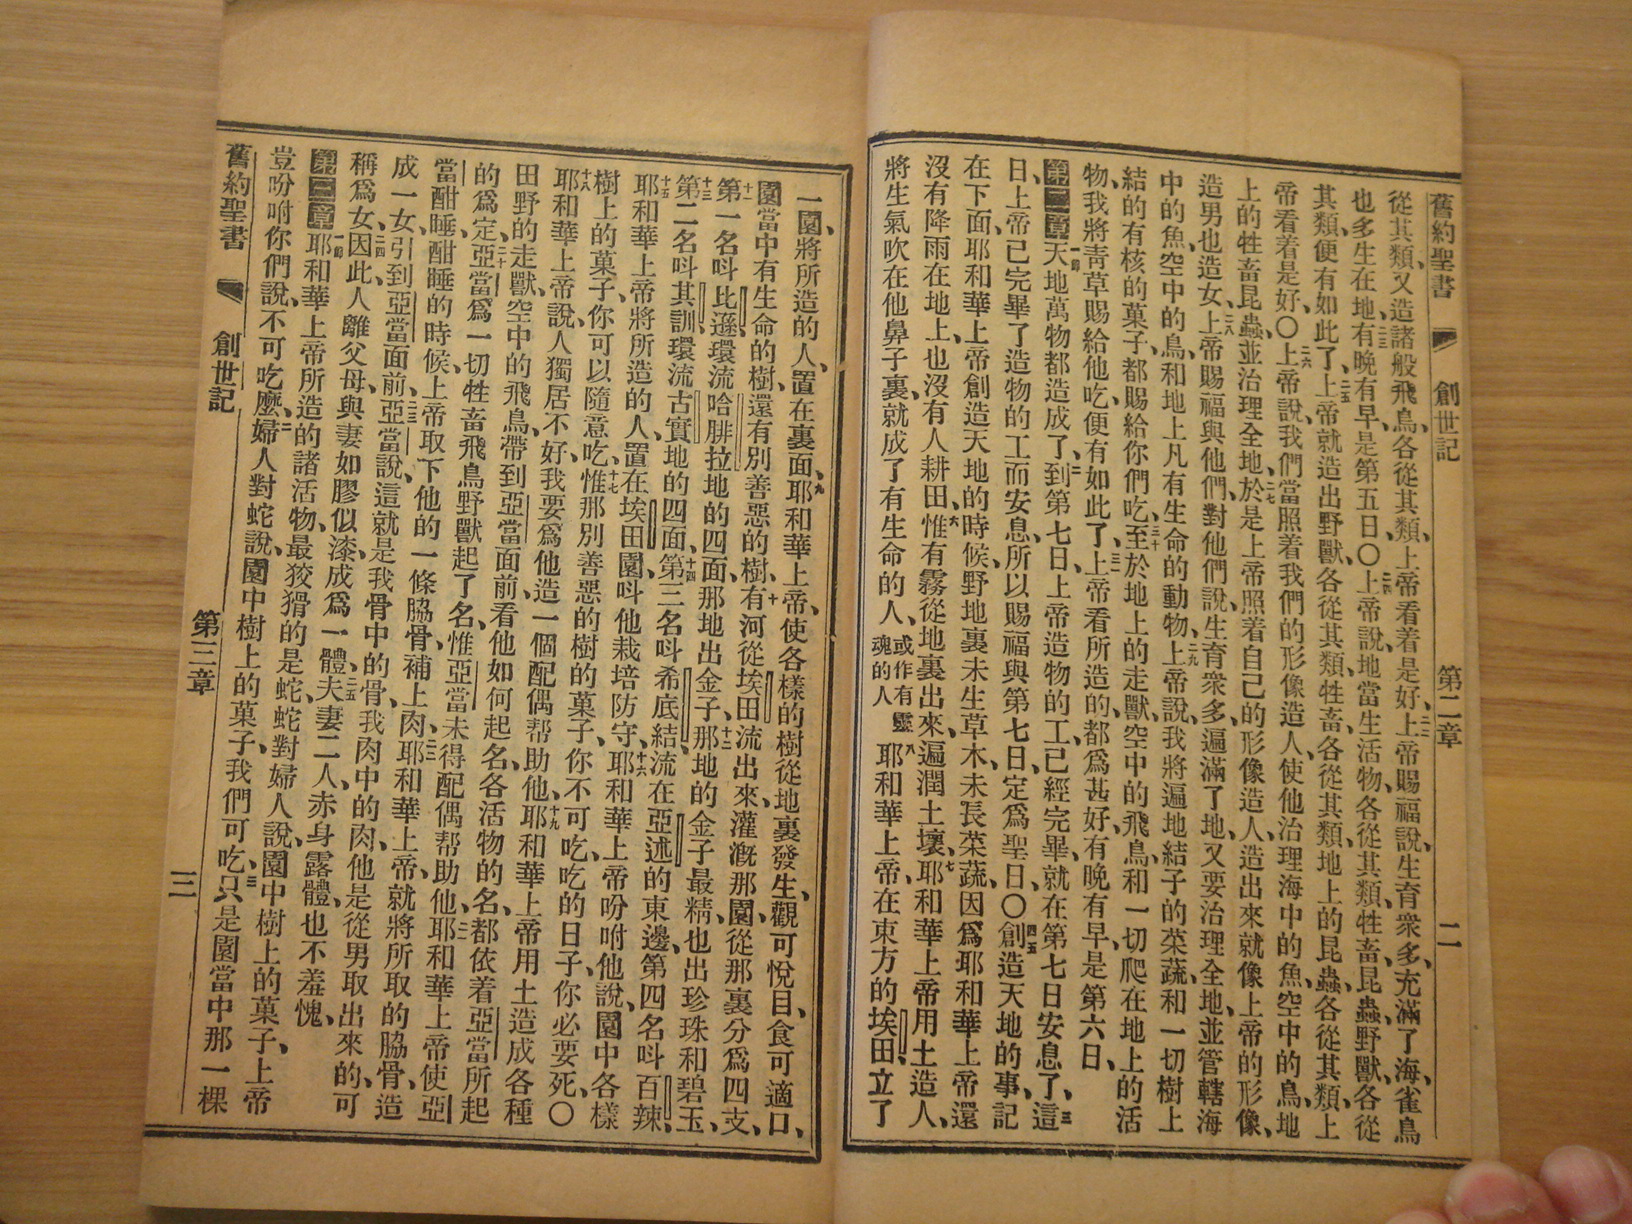 舊約聖書 創世記 第二章 二
從其類、又造諸般飛鳥、各從其類、上帝看着是好、二二上帝賜福說、生育衆多、充滿了海、雀鳥
也多生在地、二三有晚有早、是第五日〇二四上帝說、地當生活物、各從其類、牲畜昆蟲野獸、各從
其類、便有如此了、二五上帝就造出野獸、各從其類、牲畜、各從其類、地上的昆蟲、各從其類、上
帝看着是好、〇二六上帝說、我們當照着我們的形像造人、使他治理海中的魚、空中的鳥、地
上的牲畜昆蟲、並治理全地、二七於是上帝照着自己的形像造人、造出來就像上帝的形像、
造男也造女、二八上帝賜福與他們、對他們說、生育衆多、遍滿了地、又要治理全地、並管轄海
中的魚、空中的鳥、和地上凡有生命的動物、二九上帝說、我將遍地結子的菜蔬、和一切樹上
結的有核的菓子、都賜給你們吃、三十至於地上的走獸、空中的飛鳥、和一切爬在地上的活
物、我將青草賜給他吃、便有如此了、三一上帝看所造的、都爲甚好、有晚有早、是第六日、
第二章一節天地萬物都造成了、二到第七日、上帝造物的工、已經完畢、就在第七日安息了、三這
日、上帝已完畢了造物的工而安息、所以賜福與第七日、定爲聖日、〇四五創造天地的事、記
在下面、耶和華上帝創造天地的時候、野地裏未生草木、未長菜蔬、因爲耶和華上帝還
沒有降雨在地上、也沒有人耕田、六惟有霧從地裏出來、遍潤土壤、七耶和華上帝用土造人、
將生氣吹在他鼻子裏、就成了有生命的人、或作有靈魂的人八耶和華上帝、在東方的埃田、立了
一園、將所造的人、置在裏面、九耶和華上帝、使各樣的樹從地裏發生、觀可悅目、食可適口、
園當中有生命的樹、還有別善惡的樹、十有河從埃田流出來、灌漑那園、從那裏分爲四支、
十一第一名呌比遜、環流哈腓拉地的四面、那地出金子、十二那地的金子最精、也出珍珠和碧玉、
十三第二名呌其訓、環流古實地的四面、十四第三名呌希底結、流在亞述的東邊、第四名呌百辣、
十五耶和華上帝將所造的人、置在埃田園、呌他栽培防守、十六耶和華上帝吩咐他說、園中各樣
樹上的菓子、你可以隨意吃、十七惟那別善惡的樹的菓子、你不可吃、吃的日子、你必要死、〇
十八耶和華上帝說、人獨居不好、我要爲他造一個配偶帮助他、十九耶和華上帝用土造成各種
田野的走獸、空中的飛鳥、帶到亞當面前、看他如何起名、各活物的名、都依着亞當所起
的爲定、二十亞當爲一切牲畜飛鳥野獸起了名、惟亞當未得配偶帮助他、二一耶和華上帝使亞
當酣睡、酣睡的時候、上帝取下他的一條脇骨、補上肉、二二耶和華上帝、就將所取的脇骨、造
成一女、引到亞當面前、二三亞當說、這就是我骨中的骨、我肉中的肉、他是從男取出來的、可
稱爲女、二四因此人離父母、與妻如膠似漆、成爲一體、二五夫妻二人、赤身露體、也不羞愧、
第三章一節耶和華上帝所造的諸活物、最狡猾的是蛇、蛇對婦人說、園中樹上的菓子、上帝
豈吩咐你們說、不可吃麽、二婦人對蛇說、園中樹上的菓子、我們可吃、三只是園當中那一棵
舊約聖書 創世記 第三章 三